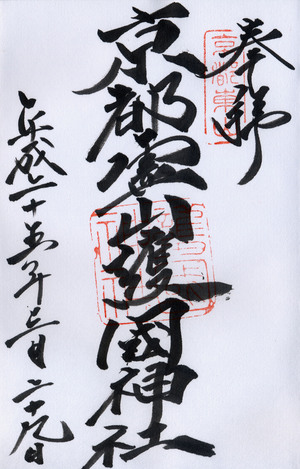 奉拝
京都霊山護國神社
平成二十五年三月二十九日